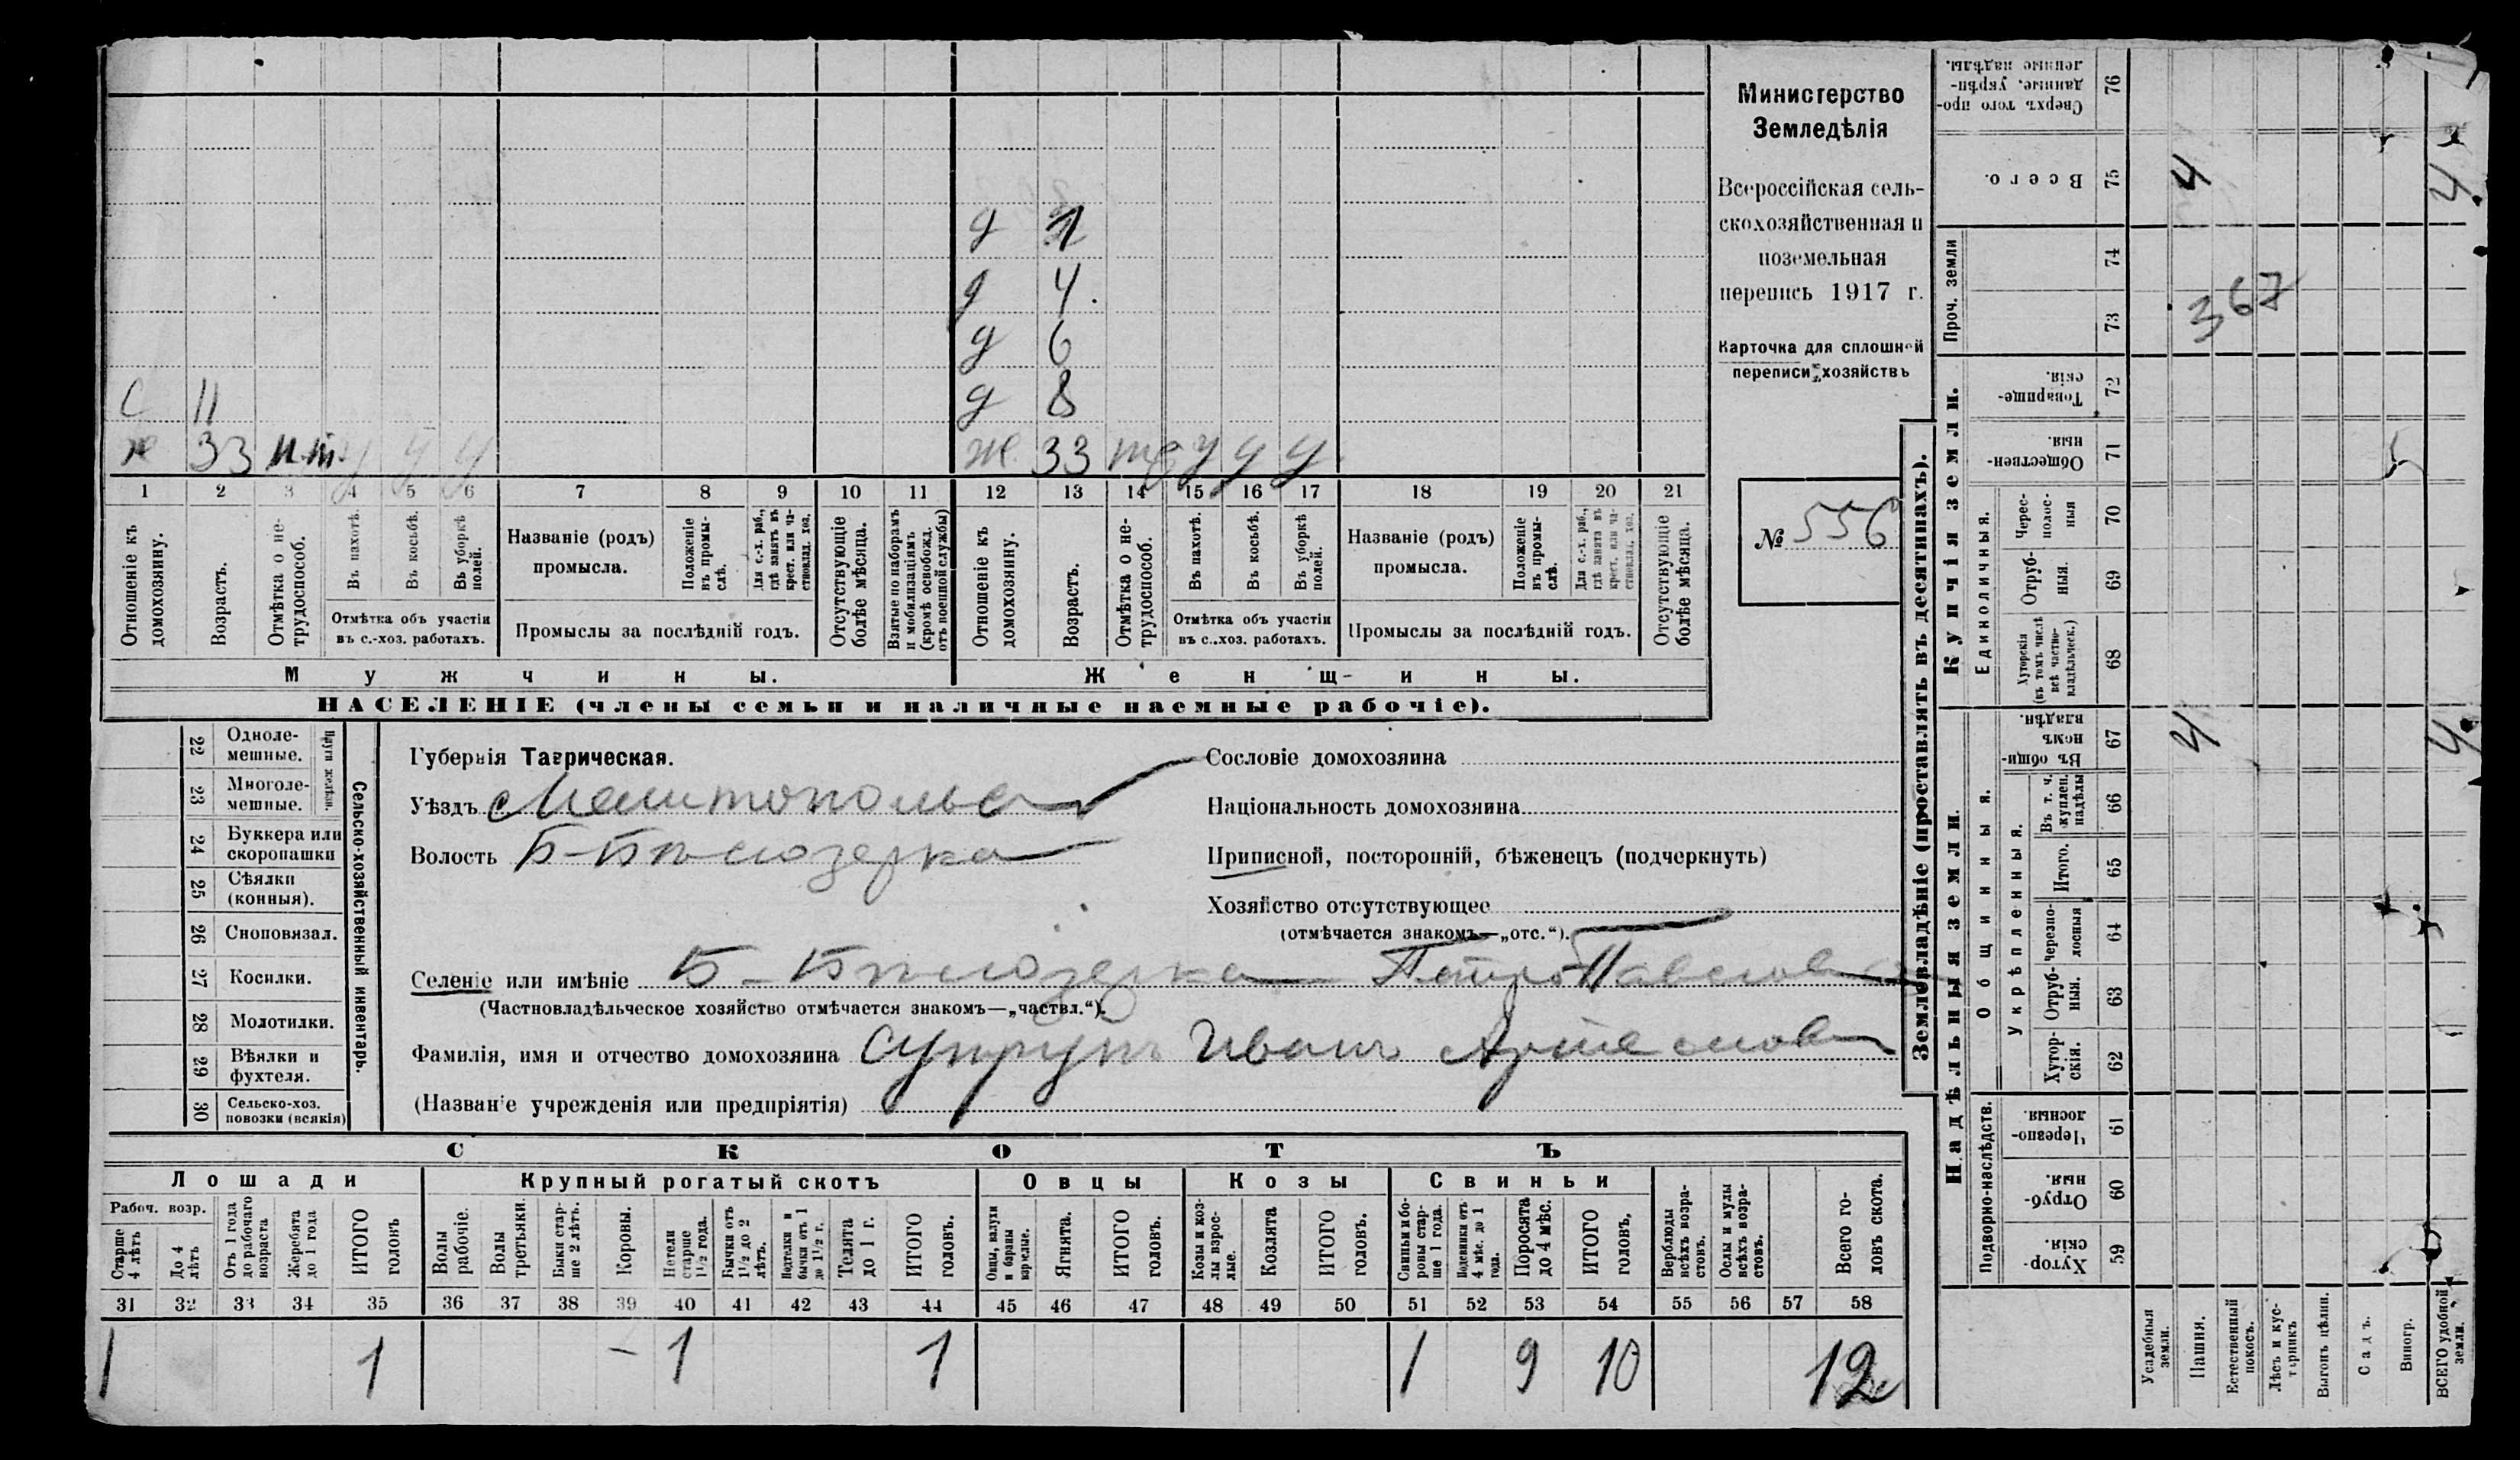 С 11
х 33 н.т. у у у
д 1
д 4.
д 6
д 8
ж 33 у у у
1 2 3 4 5 6 7 8 9 10 11 12 13 14 15 16 17 18 19 20 21
Отношеніе къ домохозяину.
Возрастъ.
Отмѣтка о не-
трудоспособ.
Въ пахотѣ.
Въ косьбѣ.
Въ уборкѣ
полей.
Отмѣтка объ участіи
въ с.-хоз. работахъ.
Названіе (родъ)
промысла.
Положеніе
въ промы-
слѣ.
Для с.-х. раб.,
гдѣ занятъ въ
крест. или ча-
стновлад. хоз.
Промыслы за послѣдній годъ.
Отсутствующіе
болѣе мѣсяца.
Взятые по наборамъ
и мобилизаціямъ
(кромѣ освобожд.
отъ военной службы)
Отношеніе къ
домохозяину.
Возрастъ.
Отмѣтка о не-
трудоспособ.
Въ пахотѣ.
Въ косьбѣ.
Въ уборкѣ
полей.
Отмѣтка объ участіи
въ с.-хоз. работахъ.
Названіе (родъ)
промысла.
Положеніе
въ промы-
слѣ.
Для с.-х. раб.,
гдѣ занята въ
крест. или ча-
стновлад. хоз.
Промыслы за послѣдній годъ.
Отсутствующіе
болѣе мѣсяца.
Мужчины.
Женщины.
НАСЕЛЕНІЕ (члены семьи и наличные наемные рабочіе).
Министерство
Земледѣлія
Всероссійская сель-
скохозяйственная и
поземельная
перепись 1917 г.
Карточка для сплошной
переписи хозяйствъ
№ 556
22 Одноле-
мешные.
23 Многоле-
мешные.
Плуги желѣзн.
24 Буккера или
скоропашки
25 Сѣялки
(конныя).
26 Сноповязал.
27 Косилки.
28 Молотилки.
29 Вѣялки и
фухтеля.
30 Сельско-хоз.
повозки (всякія)
Сельско-хозяйственный инвентарь.
Губернія Таврическая.
Уѣздъ Мелитопольс
Волость Б-Бѣлозерка
Сословіе домохозяина
Національность домохозяина
Приписной, посторонній, бѣженецъ (подчеркнуть)
Хозяйство отсутствующее
(отмѣчается знакомъ—„отс.“).
Селеніе или имѣніе Б-Бѣлозерка Петро Павлов
(Частновладѣльческое хозяйство отмѣчается знакомъ—„частвл.“).
Фамилія, имя и отчество домохозяина Супрунъ Иванъ Артемов
(Названіе учрежденія или предпріятія)
СКОТЪ
Лошади Крупный рогатый скотъ Овцы Козы Свиньи
Рабоч. возр.
Старше
4 лѣтъ
До 4
лѣтъ
Отъ 1 года
до рабочаго
возраста
Жеребята
до 1 года
ИТОГО
головъ
Волы
рабочіе.
Волы
третьяки.
Быки стар-
ше 2 лѣтъ.
Коровы.
Нетели
старше
1½ года.
Бычки отъ
1½ до 2
лѣтъ.
Подтелки и
бычки отъ 1
до 1½ г.
Телята
до 1 г.
ИТОГО
головъ.
Овцы, валухи
и бараны
взрослые.
Ягнята.
ИТОГО
головъ.
Козы и коз-
лы взрос-
лые.
Козлята
ИТОГО
головъ.
Свиньи и бо-
ровы стар-
ше 1 года.
Подсвинки отъ
4 мѣс. до 1
года.
Поросята
до 4 мѣс.
ИТОГО
головъ.
Верблюды
всѣхъ возра-
стовъ.
Ослы и мулы
всѣхъ возра-
стовъ.
Всего го-
ловъ скота.
31 32 33 34 35 36 37 38 39 40 41 42 43 44 45 46 47 48 49 50 51 52 53 54 55 56 57 58
1 1 - 1 1 1 9 10 12
Землевладѣніе (проставлять въ десятинахъ).
Надѣльныя земли.
Купчія земли.
Проч. земли
Подворно-наслѣдств.
Общинныя.
Укрѣпленныя.
Единоличныя.
Сверхъ того про-
данные, укрѣп-
ленные надѣлы.
76
Всего.
75 4 4
74
73 367
Товарище-
скія.
72
Обществен-
ныя.
71
Черес-
полос-
ныя
70
Отруб-
ныя.
69
Хуторскія
(въ томъ числѣ
всѣ частно-
владѣльческ.)
68
Въ общи-
номъ
владѣн.
67 4 4
Въ т. ч.
куплен.
надѣлы
66
Итого.
65
черезпо-
лосныя
64
Отруб-
ныя.
63
Хутор-
скія.
62
Черезпо-
лосныя.
61
Отруб-
ныя.
60
Хутор-
скія.
59
Усадебныя
земли.
Пашня.
Естественный
покосъ.
Лѣсъ и кус-
тарникъ
Выгонъ цѣлин.
Садъ.
Виногр.
ВСЕГО удобной
земли.